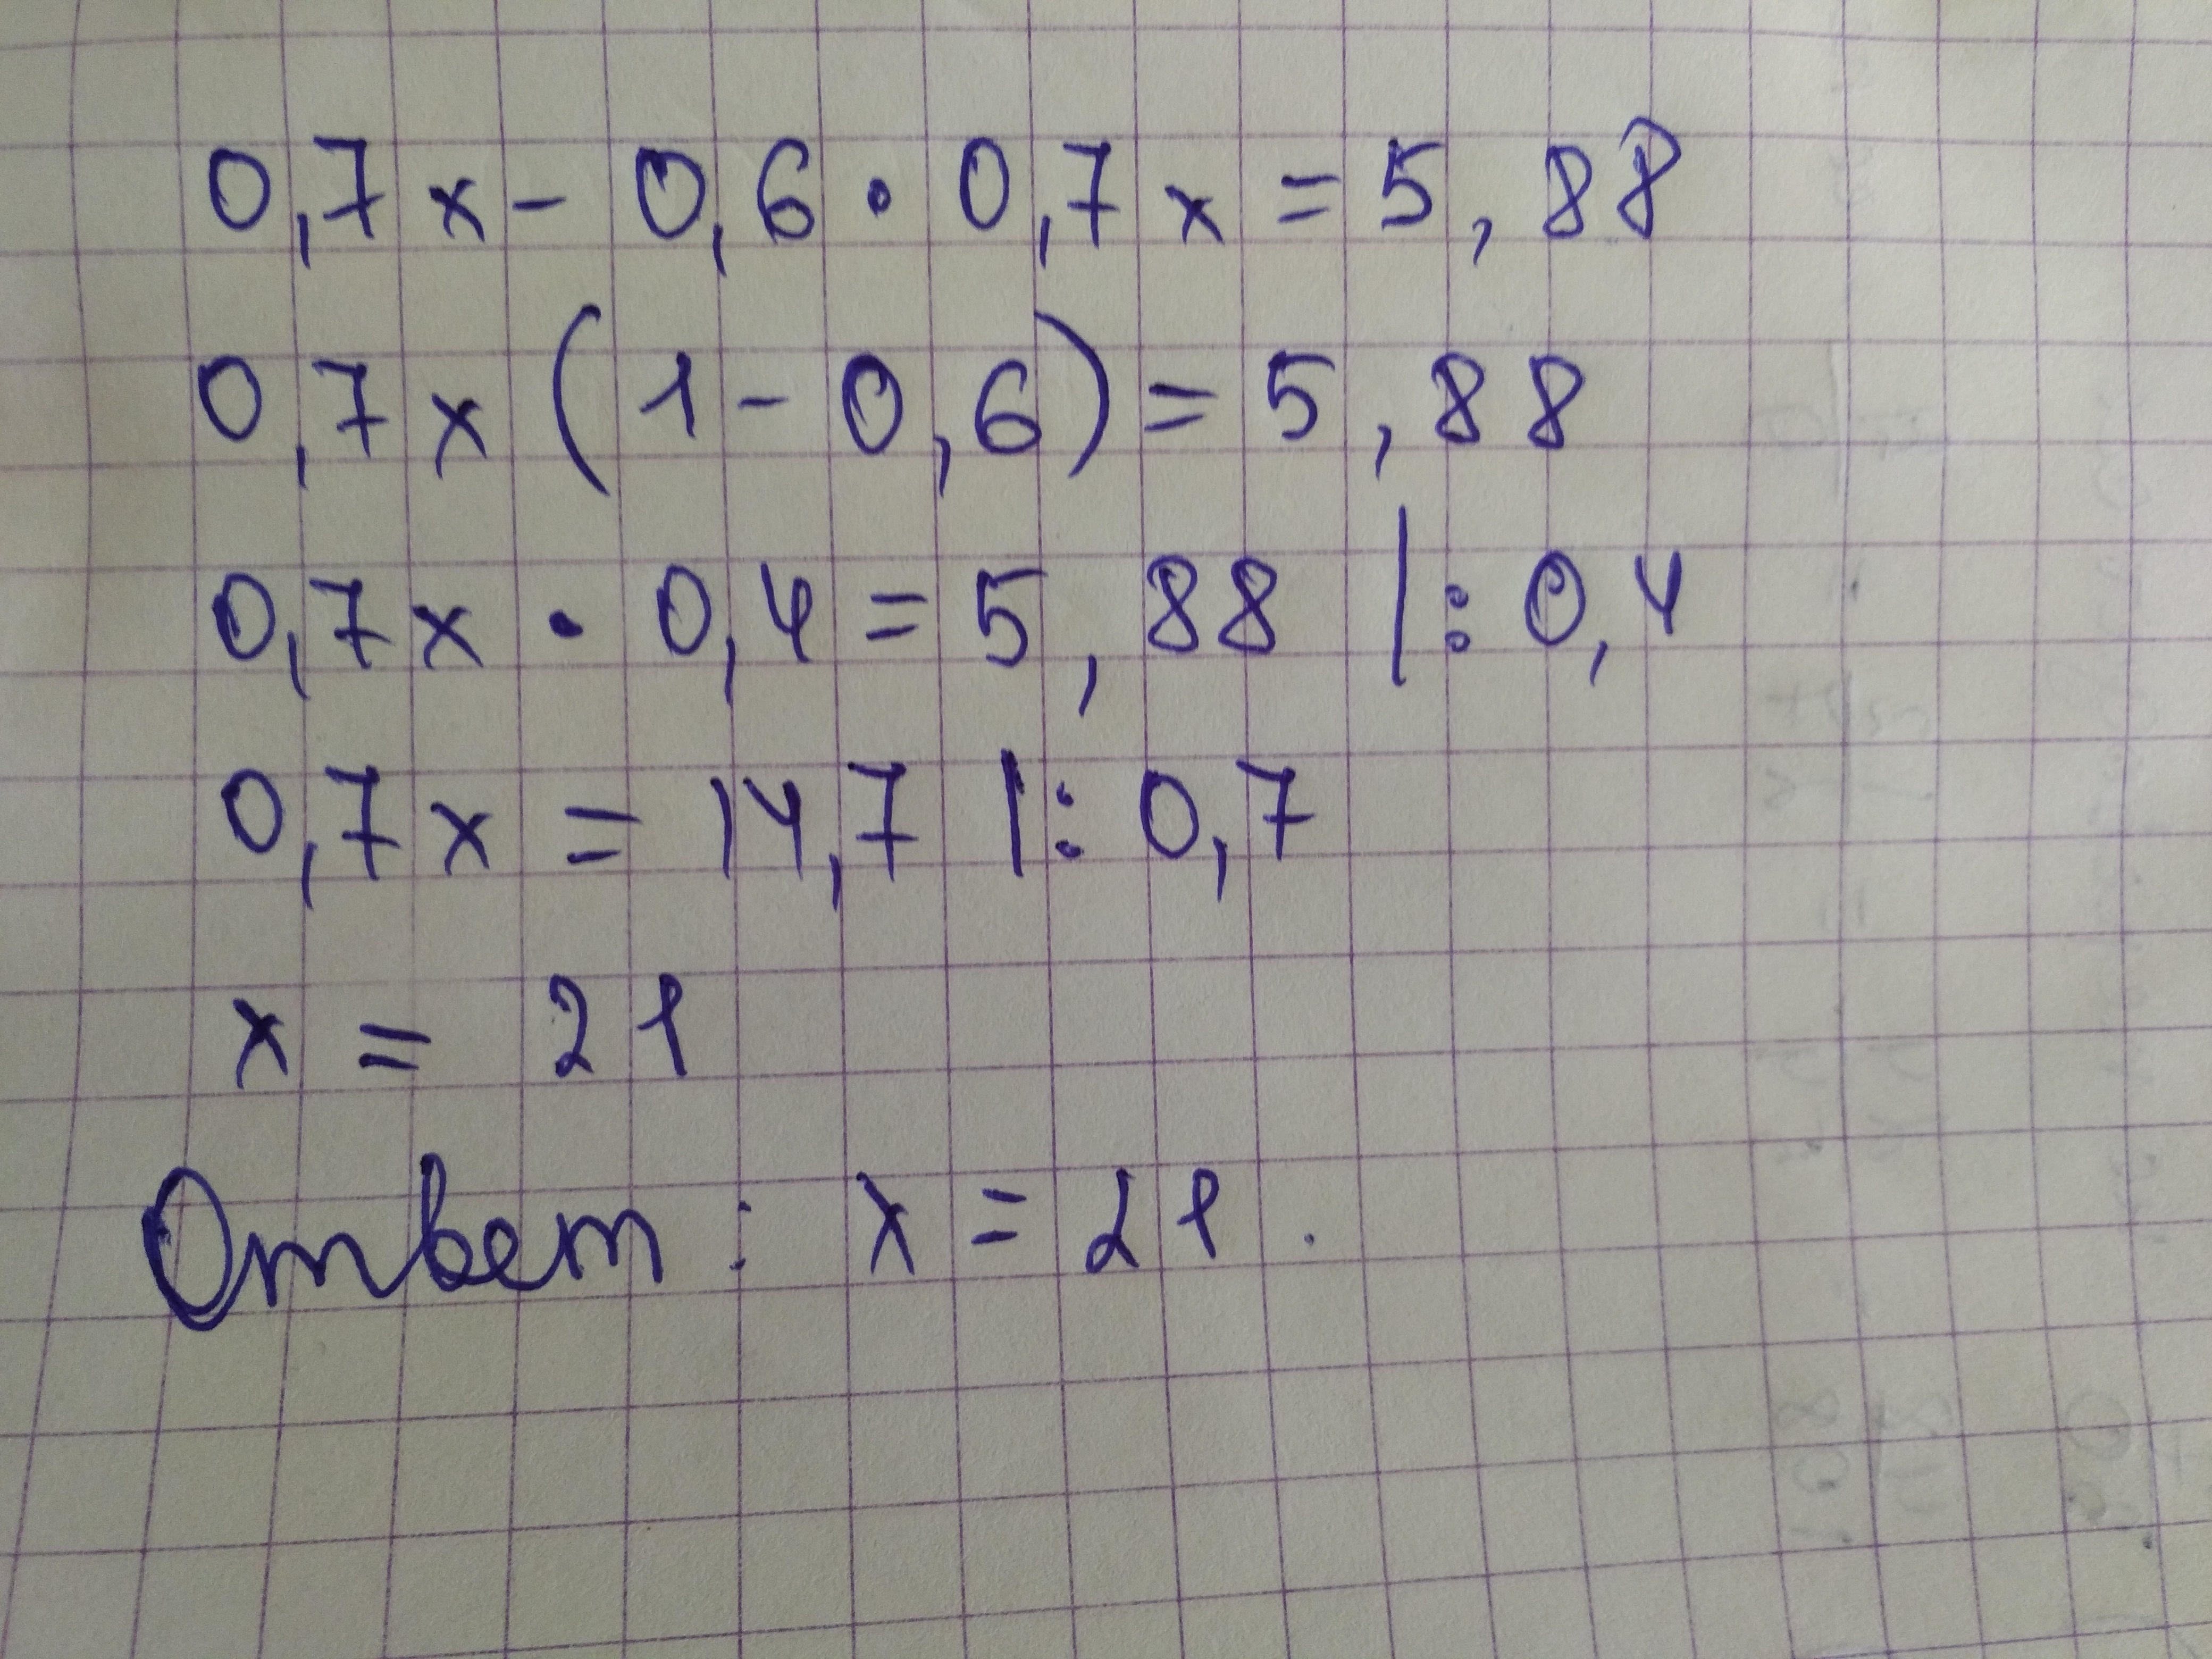 0,7x - 0,6 · 0,7x = 5,88
0,7x (1 - 0,6) = 5,88
0,7x · 0,4 = 5,88 |: 0,4
0,7x = 14,7 |: 0,7
x = 21
Ответ: x = 21.